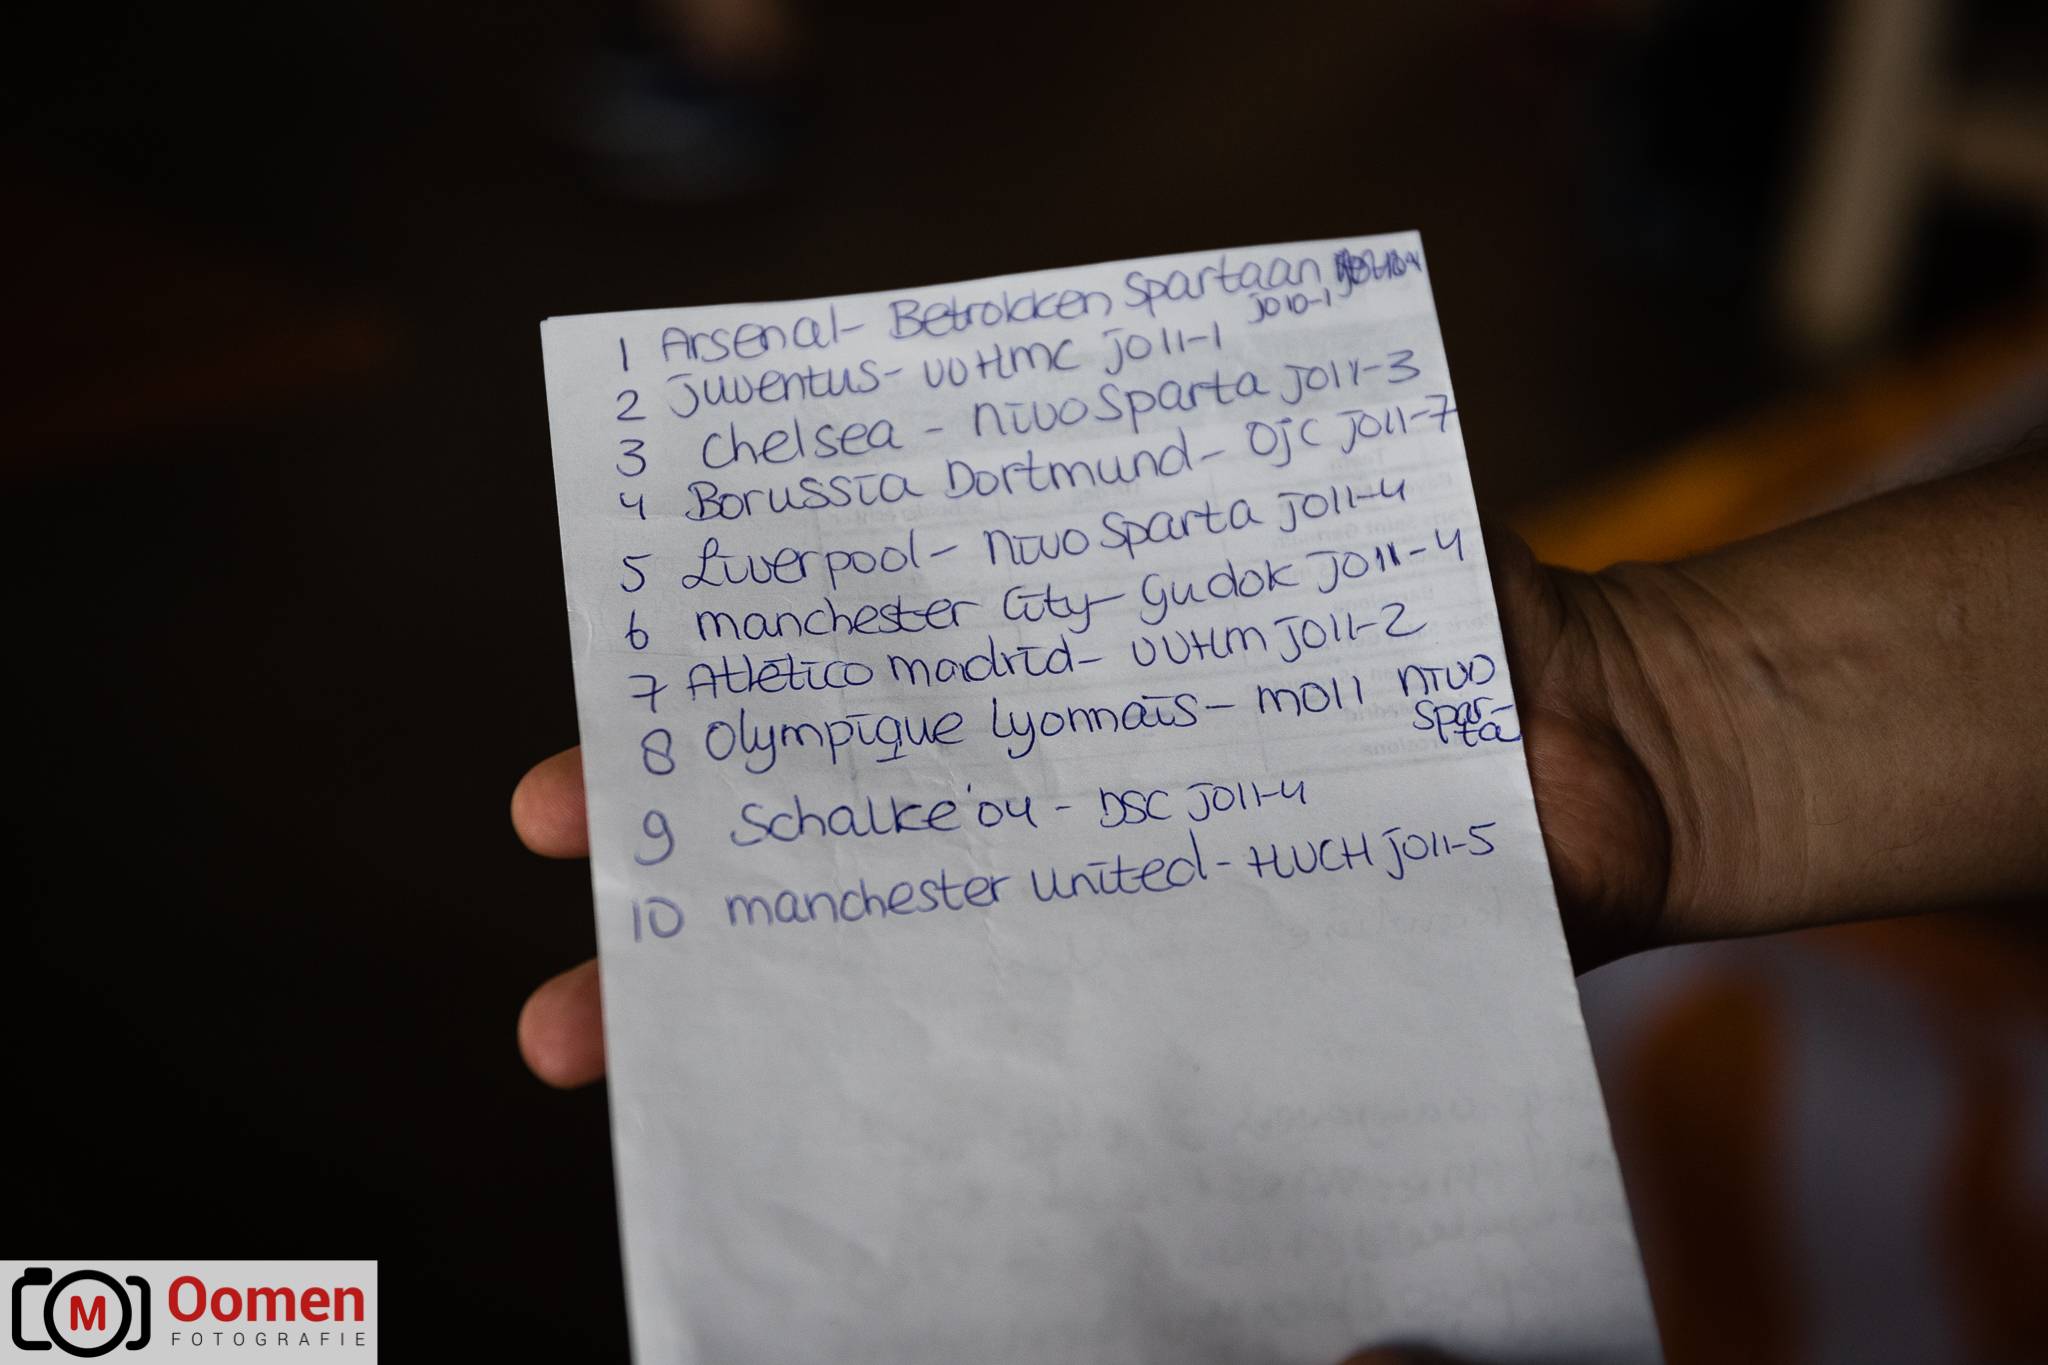 1 Arsenal - Betrokken Spartaan
JO10-1
2 Juventus - VVHMC JO11-1
3 Chelsea - Nivo Sparta JO11-3
4 Borussia Dortmund - OJC JO11-7
5 Liverpool - Nivo Sparta JO11-4
6 manchester City - Gudok JO11-4
7 Atlético Madrid - VVHM JO11-2
8 Olympique Lyonnais - MO11 Nivo
Spar-
ta
9 Schalke '04 - DSC JO11-4
10 manchester United - HVCH JO11-5
M
Oomen
FOTOGRAFIE